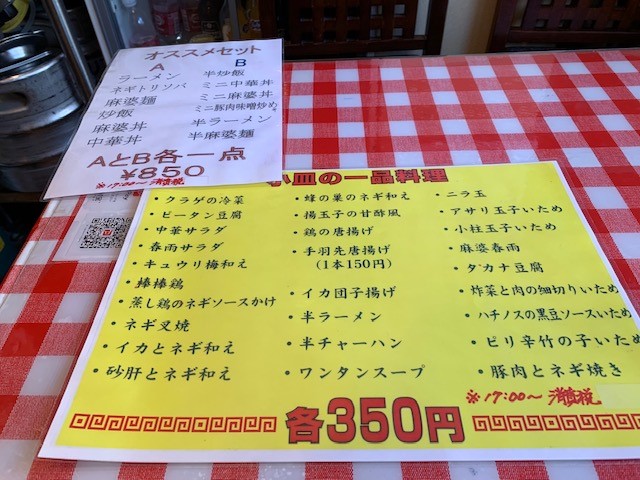 オススメセット
A B
ラーメン 半炒飯
ネギトリソバ ミニ中華丼
麻婆麺 ミニ麻婆丼
炒飯 ミニ豚肉味噌炒め
麻婆丼 半ラーメン
中華丼 半麻婆麺
AとB各一点
¥850
※17:00～消費税
小皿の一品料理
・クラゲの冷菜
・ピータン豆腐
・中華サラダ
・春雨サラダ
・キュウリ梅和え
・棒棒鶏
・蒸し鶏のネギソースかけ
・ネギ叉焼
・イカとネギ和え
・砂肝とネギ和え
・蜂の巣のネギ和え
・揚玉子の甘酢風
・鶏の唐揚げ
・手羽先唐揚げ
(1本150円)
・イカ団子揚げ
・半ラーメン
・半チャーハン
・ワンタンスープ
・ニラ玉
・アサリ玉子いため
・小柱玉子いため
・麻婆春雨
・タカナ豆腐
・炸菜と肉の細切りいため
・ハチノスの黒豆ソースいため
・ピリ辛竹の子いため
・豚肉とネギ焼き
※17:00～消費税
各350円